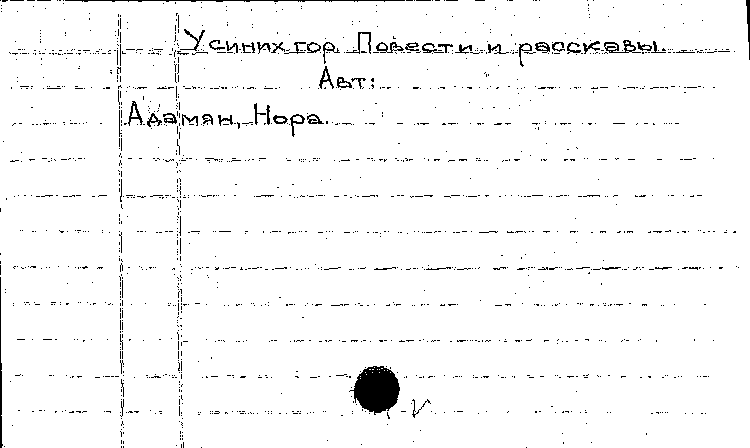 У синих гор. Повести и рассказы.
Авт:
Адамян, Нора.